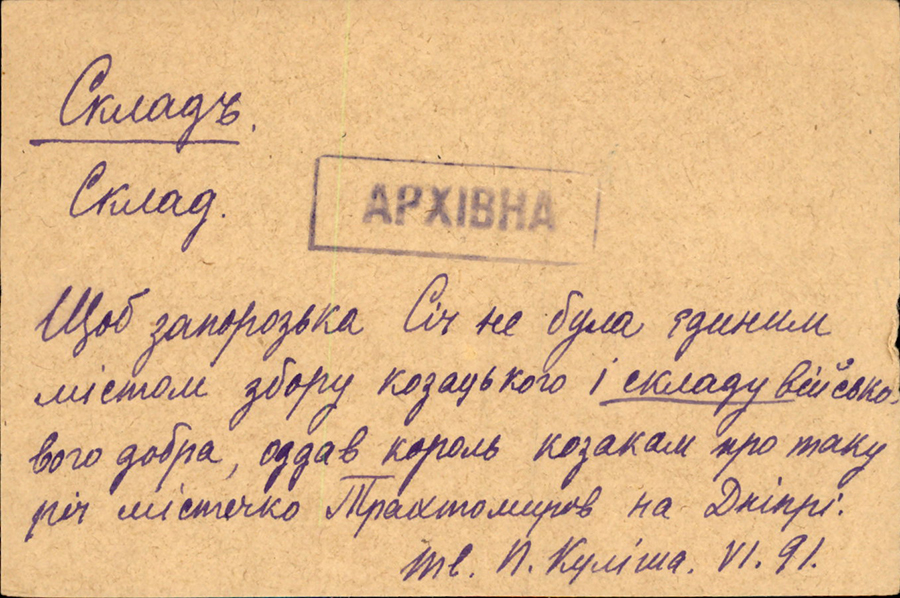 Складъ.
Склад.
АРХІВНА
Щоб запорозька Січ не була єдиним
містом збору козацького і складу військо-
вого добра, оддав король козакам про таку
річ містечко Трахтомиров на Дніпрі.
Тв. П. Куліша. VI. 91.